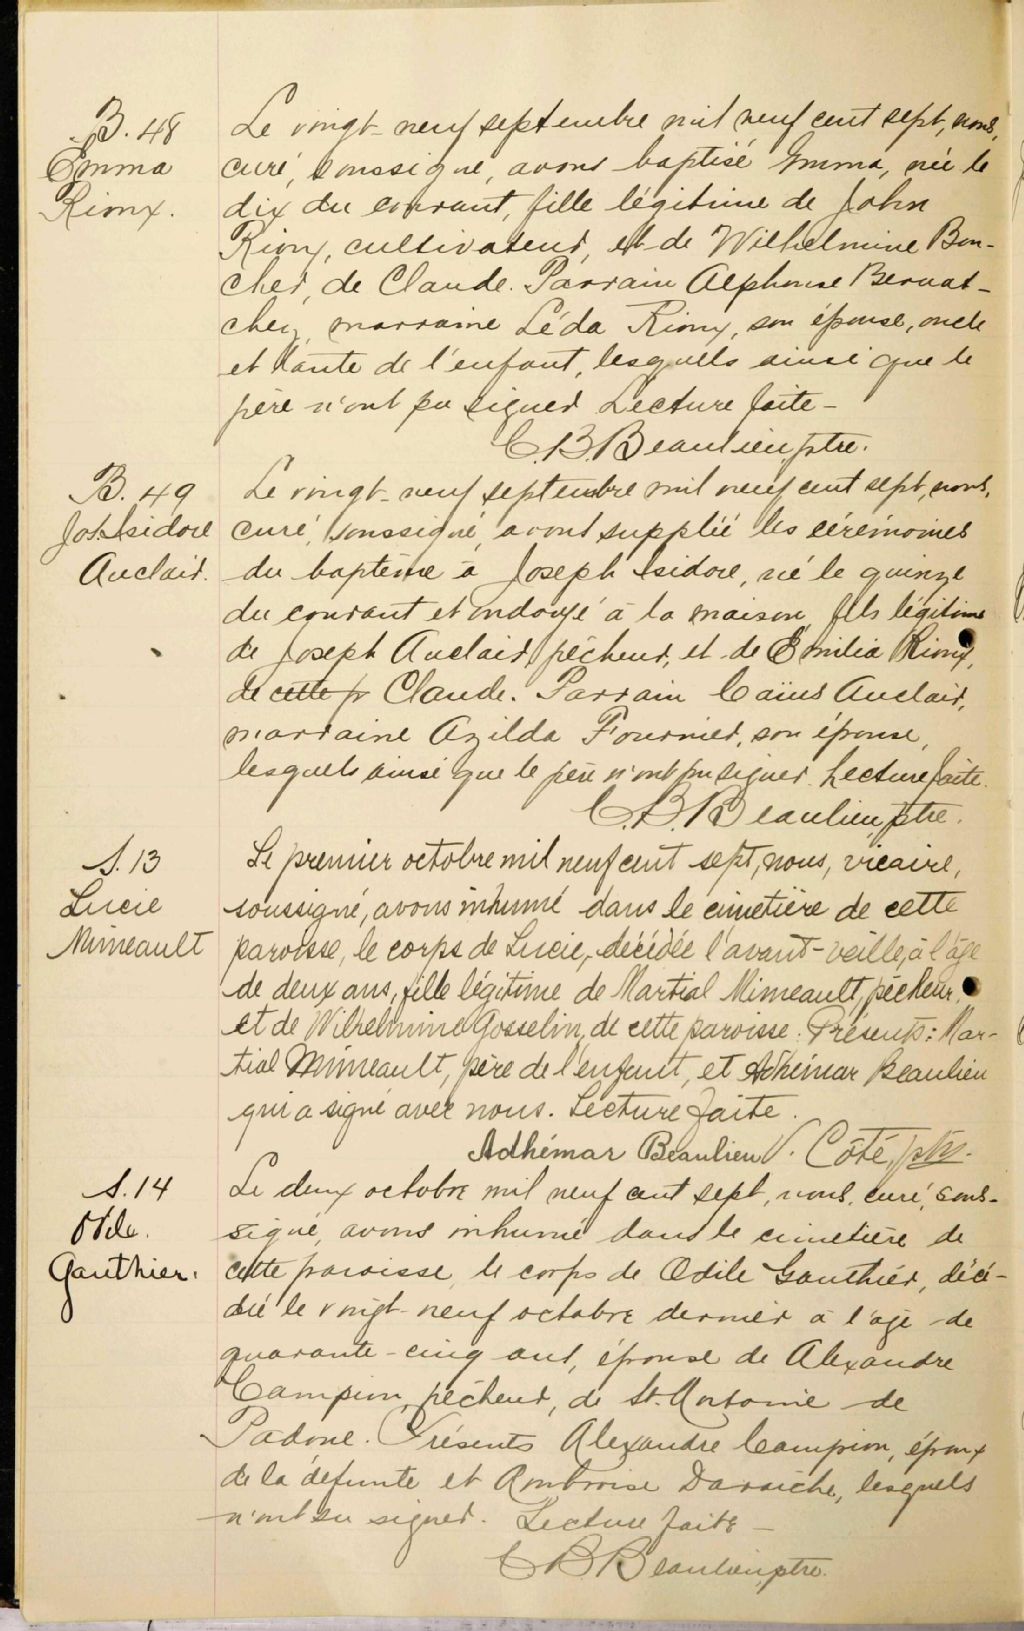 B. 48
Emma
Rioux.
Le vingt-neuf septembre mil neuf cent sept, nous,
curé, soussigné, avons baptisé Emma, née le
dix du courant, fille légitime de John
Rioux, cultivateur, et de Wilhelmine Bou-
cher, de Claude. Parrain Alphonse Bernat-
chez, marraine Léda Rioux, son épouse, oncle
et tante de l'enfant, lesquels ainsi que le
père n'ont pu signer Lecture faite –
C. B. Beaulieu, ptre.
B. 49
Jos. Isidore
Auclair.
Le vingt-neuf septembre mil neuf cent sept, nous,
curé, soussigné, avons supplié les cérémonies
du baptême à Joseph Isidore, né le quinze
du courant et ondoyé à la maison, fils légitime
de Joseph Auclair, pêcheur, et de Émilia Rioux,
de cette p Claude. Parrain Caïus Auclair,
marraine Azilda Fournier, son épouse,
lesquels ainsi que le père n'ont pu signer. Lecture faite.
C. B. Beaulieu, ptre.
S. 13
Lucie
Mimeault
Le premier octobre mil neuf cent sept, nous, vicaire,
soussigné, avons inhumé dans le cimetière de cette
paroisse, le corps de Lucie, décédée l'avant-veille, à l'âge
de deux ans, fille légitime de Martial Mimeault, pêcheur,
et de Wilhelmine Gosselin, de cette paroisse. Présents: Mar-
tial Mimeault, père de l'enfant, et Adhémar Beaulieu
qui a signé avec nous. Lecture faite.
Adhémar Beaulieu V. Côté, ptr.
S. 14
Odile
Gauthier.
Le deux octobre mil neuf cent sept, nous, curé, sous-
signé, avons inhumé dans le cimetière de
cette paroisse, le corps de Odile Gauthier, décé-
dée le vingt-neuf octobre dernier à l'âge de
quarante-cinq ans, épouse de Alexandre
Campion, pêcheur, de St. Antoine de
Padoue. Présents Alexandre Campion, époux
de la défunte et Ambroise Daraiche, lesquels
n'ont su signer. Lecture faite –
C B Beaulieu, ptre.